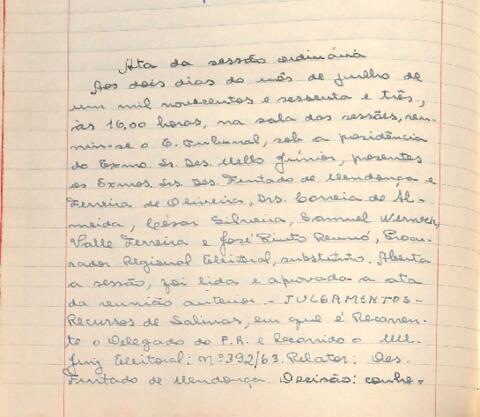 Ata da sessão ordinária
Aos dois dias do mês de julho de
um mil novecentos e sessenta e três,
às 16,00 horas, na sala das sessões, reu-
niu-se o E. Tribunal, sob a presidência
do Exmo. Sr. Des. Mello Júnior, presentes
os Exmos. Srs. Des. Furtado de Mendonça e
Ferreira de Oliveira, Drs. Correia de Al-
meida, César Silveira, Samuel Werneck,
Valle Ferreira e José Pinto Renó, Procu-
rador Regional Eleitoral, substituto. Aberta
a sessão, foi lida e aprovada a ata
da reunião anterior. - JULGAMENTOS -
Recursos de Salinas, em que é Recorren-
te o Delegado do P.R. e Recorrido o MM.
Juiz Eleitoral: Nº 392/63. Relator: Des.
Furtado de Mendonça. Decisão: conhe-